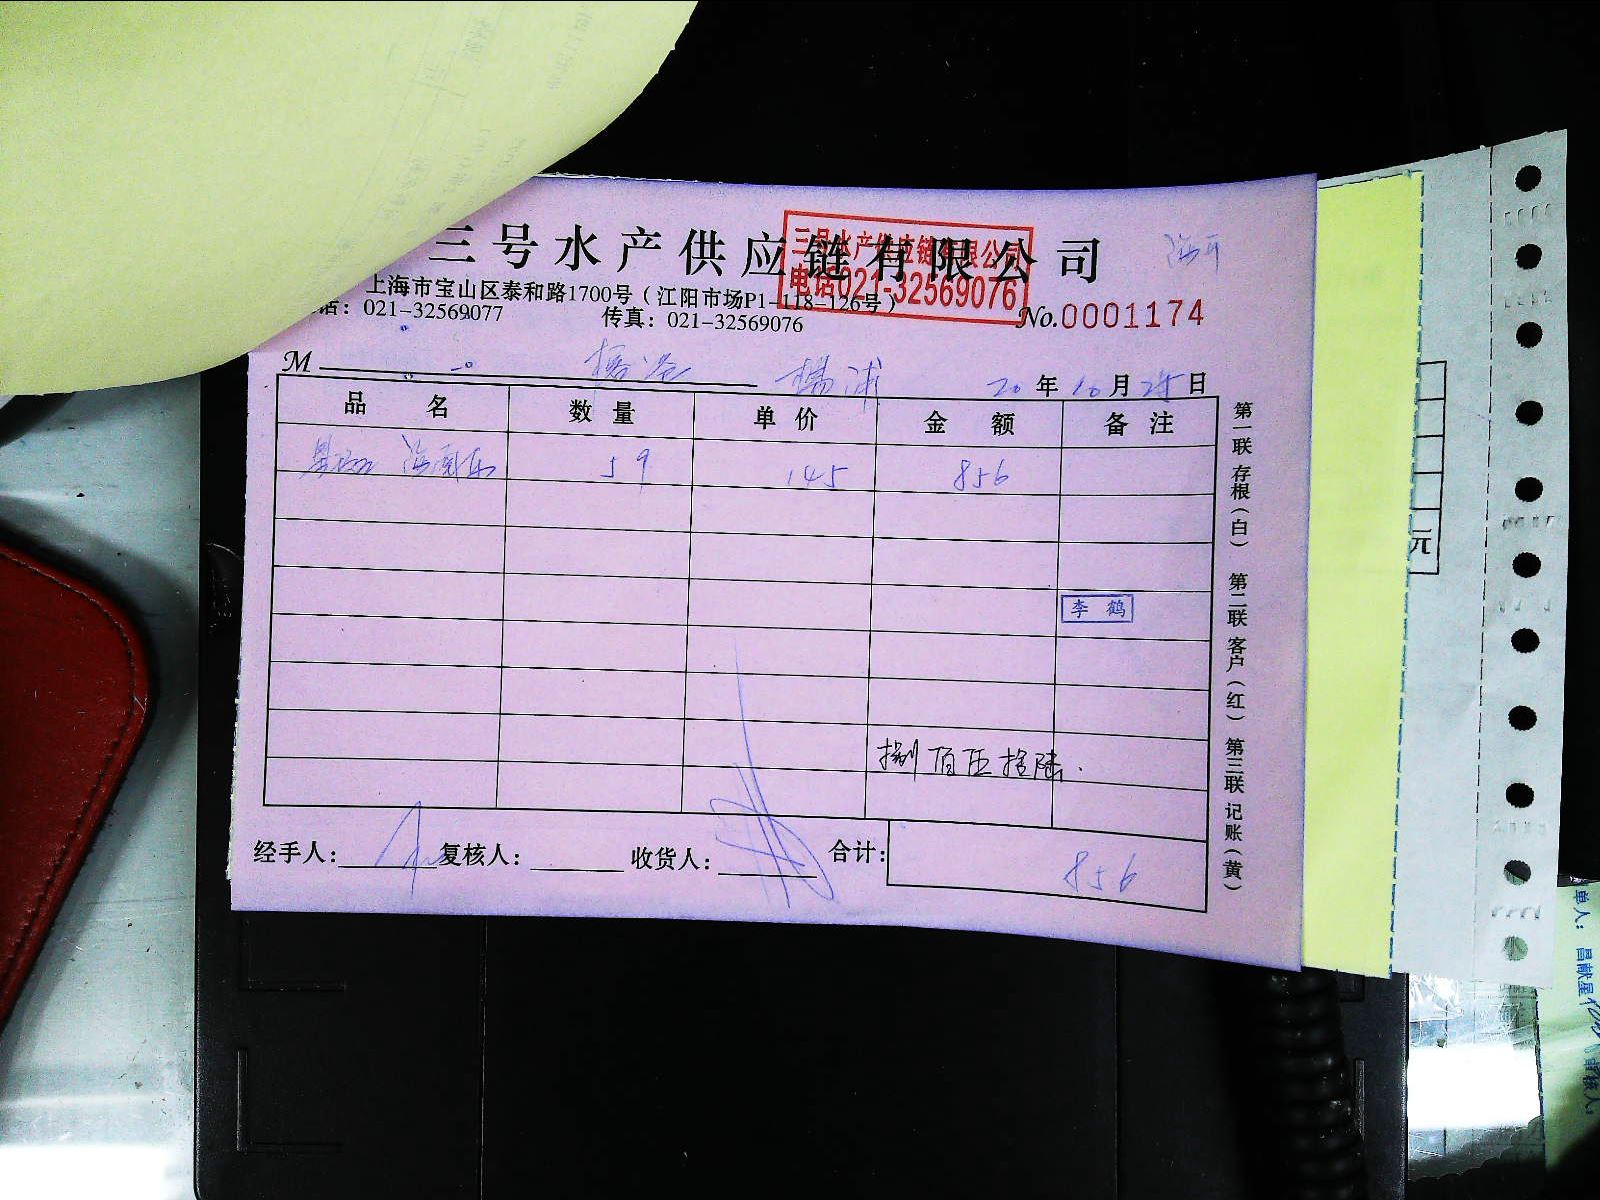 三号水产供应链有限公司
三号水产供应链有限公司
电话021-32569076
上海市宝山区泰和路1700号（江阳市场P1-118-126号）
话：021-32569077 传真：021-32569076
No.0001174
M 杨浦 20年10月25日
品名 数量 单价 金额 备注
59 145 856
李鹤
捌佰伍拾陆
经手人： 复核人： 收货人： 合计：856
第一联存根（白） 第二联客户（红） 第三联记账（黄）
元
单人：昌献星
审核人：